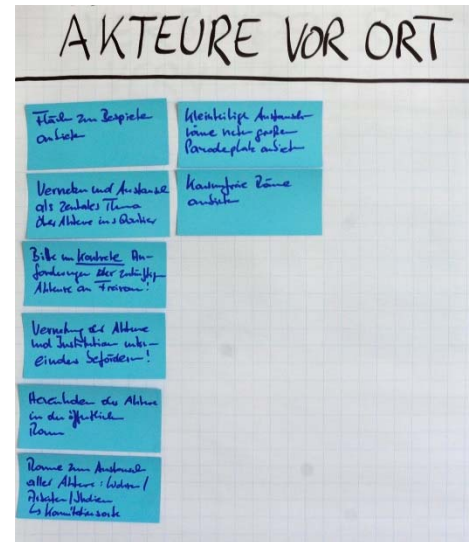 AKTEURE VOR ORT
Fläche zum Bespielen
anbieten
Vernetzen und Austausch
als zentrales Thema
über Akteure ins Quartier
Bitte um konkrete An-
forderungen der zukünftigen
Akteure an Freiraum!
Vernetzung der Akteure
und Institution unter-
einander befördern!
Hereinholen der Akteure
in den öffentlichen
Raum
Räume zum Austausch
aller Akteure: Wohnen /
Arbeiten / Studieren
Kleinteilige Austausch-
räume neben großen
Paradeplatz anbieten
Konsumfreie Räume
anbieten